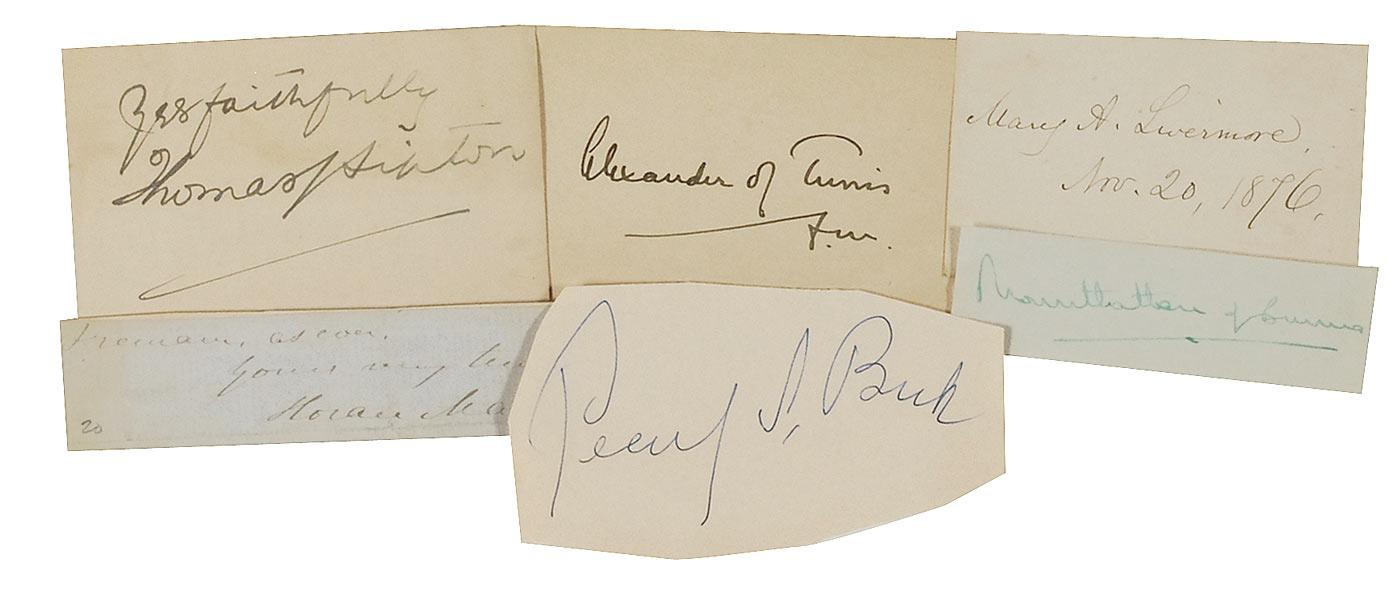 Yrs faithfully
Thomas Lipton
Alexander of Tunis
F.M.
Mary A. Livermore.
Nov. 20, 1876.
I remain, as ever,
Yours very
Horace Ma
20
Mountbatten of Burma
Pearl S. Buck